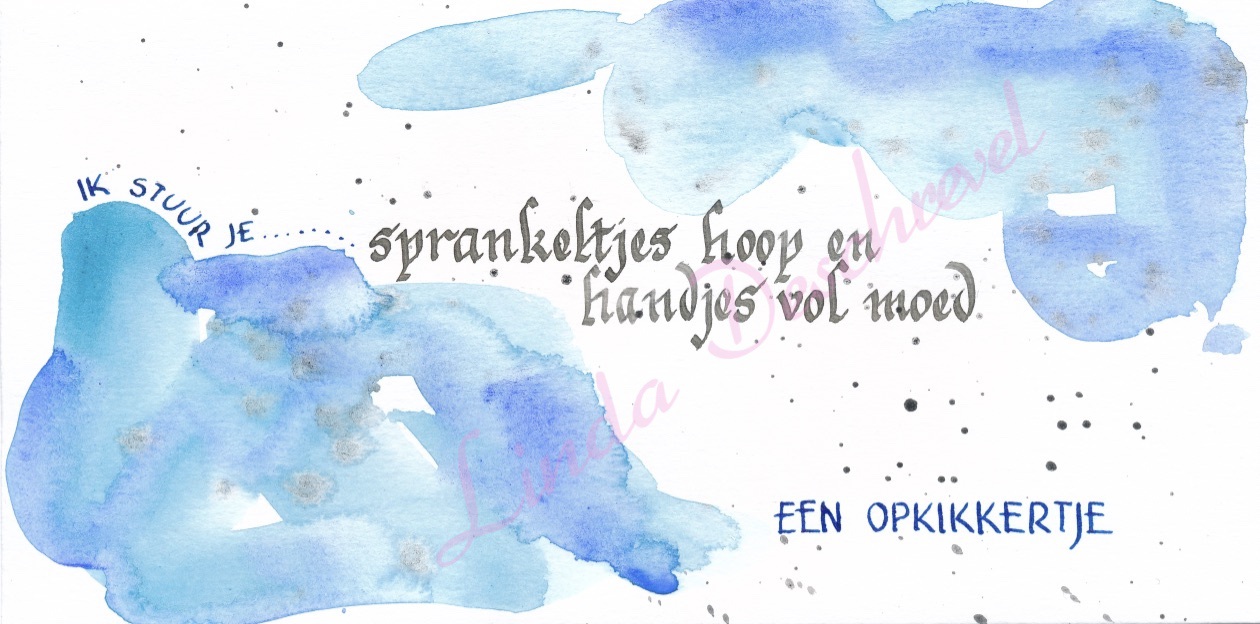 IK STUUR JE........
sprankeltjes hoop en
handjes vol moed
EEN OPKIKKERTJE
Linda Deschrevel